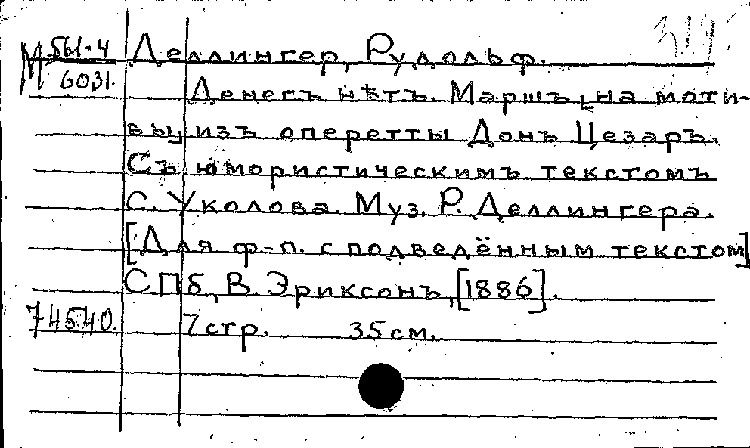 М 561-4/6031. Деллингер, Рудольф.
Денегъ нѣтъ. Маршъ на моти-
вы изъ оперетты Донъ Цезаръ.
Съ юмористическимъ текстомъ
С. Уколова. Муз. Р. Деллингера.
[Для ф-п. с подведённым текстом]
СПб, В. Эриксонъ, [1886].
74540. 7 стр. 35 см.